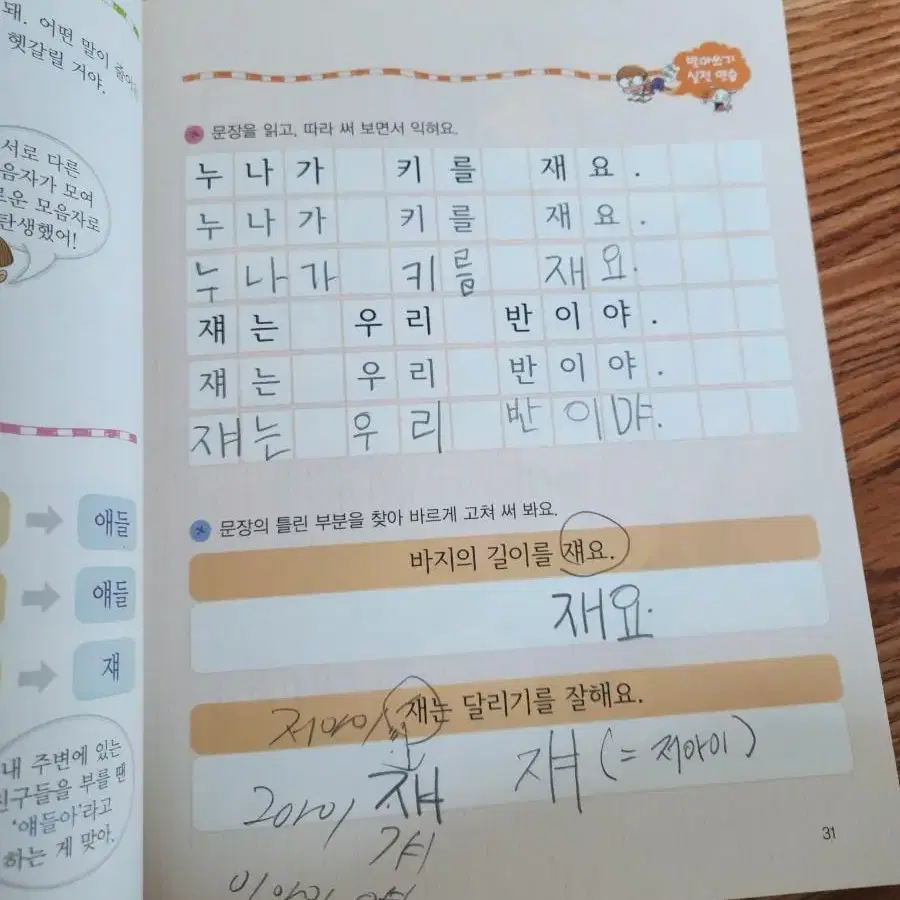 돼. 어떤 말이
헷갈릴 거야.
서로 다른
음자가 모여
로운 모음자로
탄생했어!
얘들
얘들
쟤
내 주변에 있는
친구들을 부를 땐
'얘들아'라고
하는 게 맞아.
받아쓰기
실전 연습
문장을 읽고, 따라 써 보면서 익혀요.
누나가 키를 재요.
누나가 키를 재요.
누나가 키를 재요.
쟤는 우리 반이야.
쟤는 우리 반이야.
쟤는 우리 반이먀.
문장의 틀린 부분을 찾아 바르게 고쳐 써 봐요.
바지의 길이를 쟤요.
재요.
재는 달리기를 잘해요.
저아이
쟤 쟤 (= 저아이)
그아이
걔
이아이 얘
31